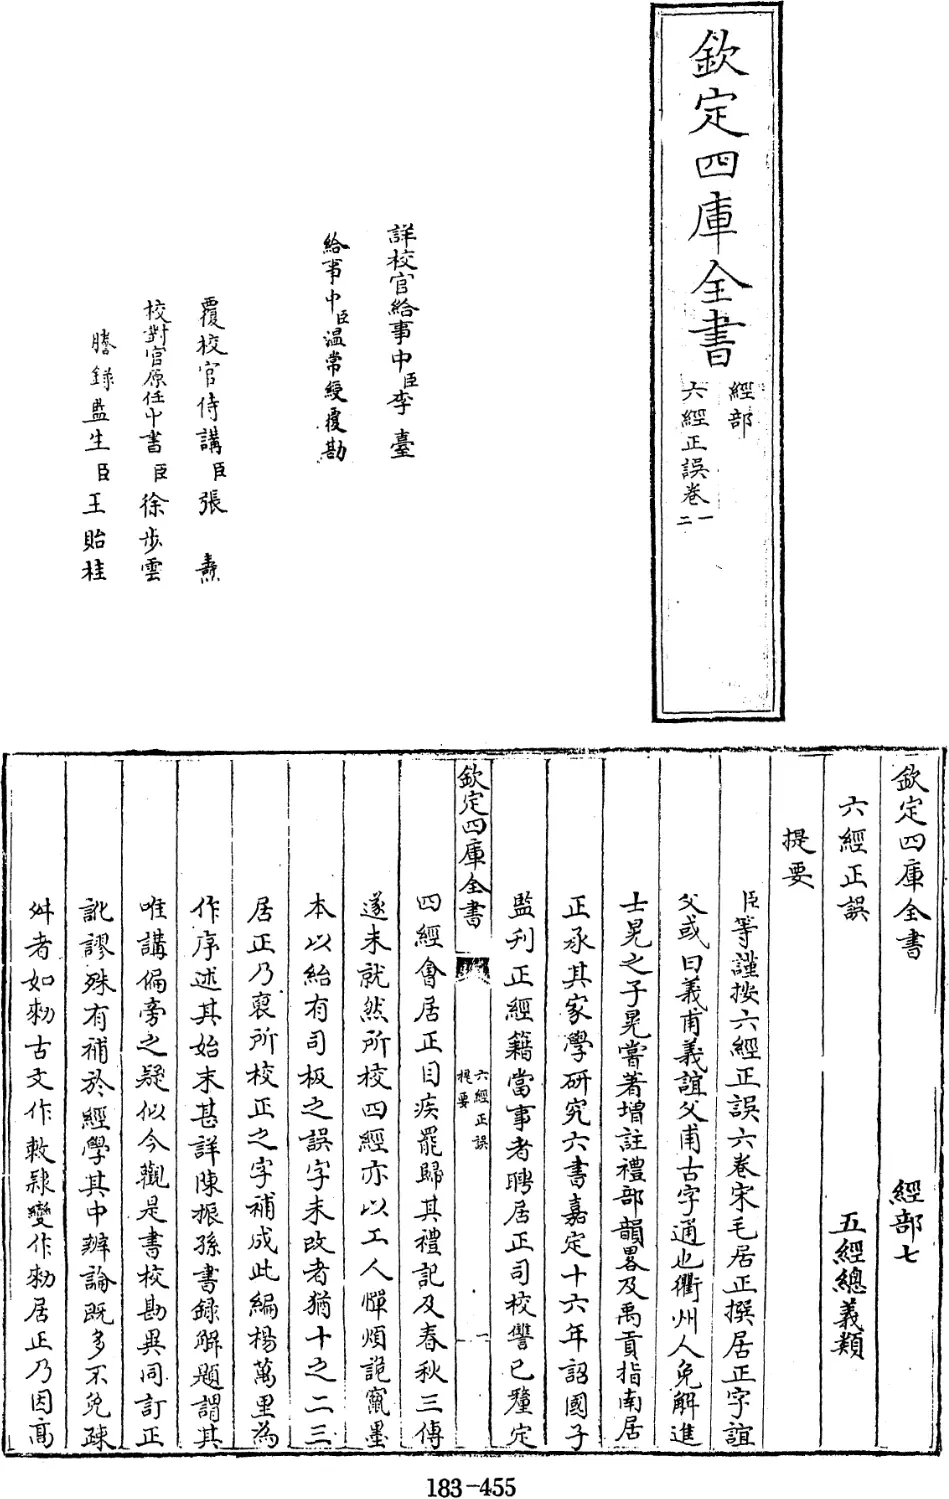 欽定四庫全書
經部
六經正誤卷一二
詳校官給事中臣李臺
給事中臣温常綬覆勘
覆校官侍講臣張燾
校對官原任中書臣徐步雲
謄錄監生臣王貽桂
欽定四庫全書 經部七
六經正誤 五經總義類
提要
臣等謹按六經正誤六卷宋毛居正撰居正字誼
父或曰義甫義誼父甫古字通也衢州人免解進
士晃之子晃嘗著增註禮部韻畧及禹貢指南居
正承其家學研究六書嘉定十六年詔國子
監刋正經籍當事者聘居正司校讐已釐定
欽定四庫全書
六經正誤
提要
一
四經會居正目疾罷歸其禮記及春秋三傳
遂未就然所校四經亦以工人憚煩詭竄墨
本以紿有司板之誤字未改者猶十之二三
居正乃裒所校正之字補成此編楊萬里為
作序述其始末甚詳陳振孫書録解題謂其
唯講偏旁之疑似今觀是書校勘異同訂正
訛謬殊有補於經學其中辨論既多不免疎
舛者如勑古文作敕隸變作勑居正乃因高
183-455